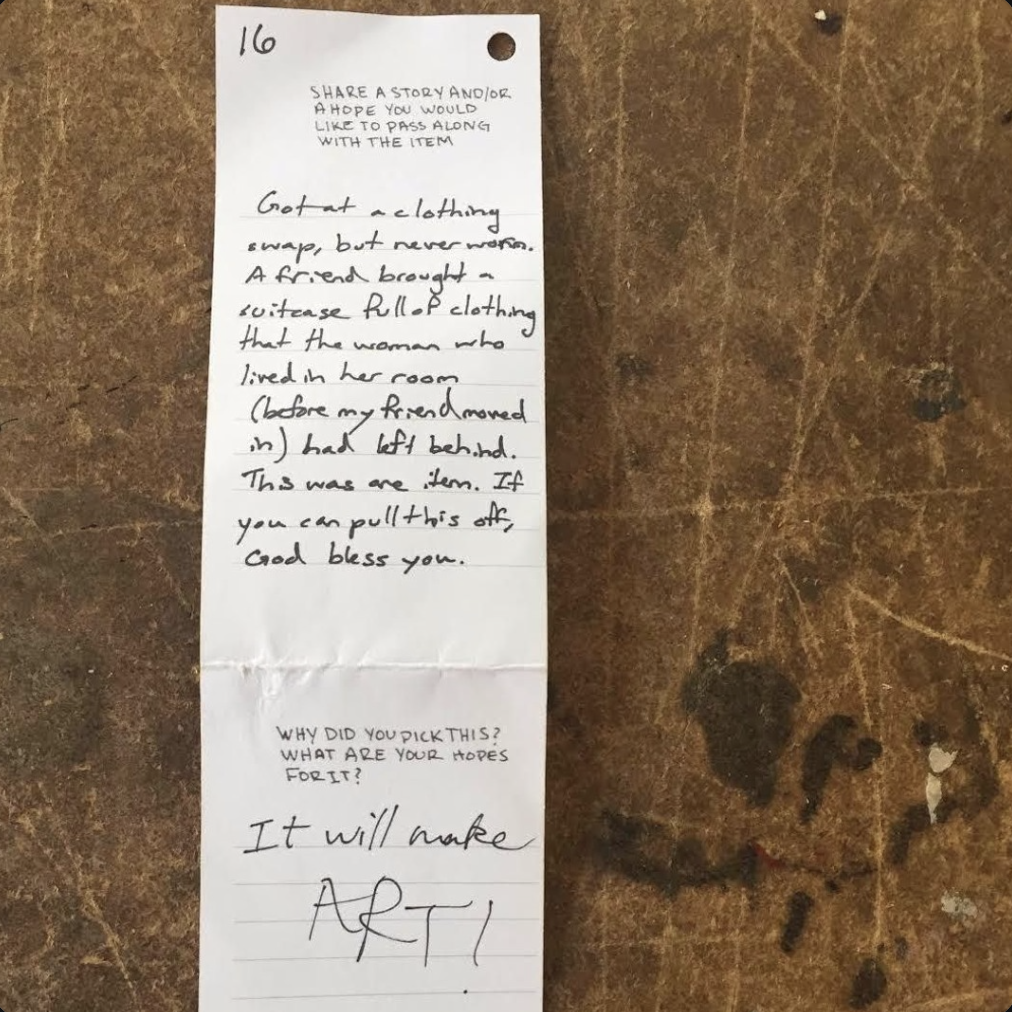 16
SHARE A STORY AND/OR
A HOPE YOU WOULD
LIKE TO PASS ALONG
WITH THE ITEM
Got at a clothing
swap, but never worn.
A friend brought a
suitcase full of clothing
that the woman who
lived in her room
(before my friend moved
in) had left behind.
This was one item. If
you can pull this off,
God bless you.
WHY DID YOU PICK THIS?
WHAT ARE YOUR HOPES
FOR IT?
It will make
ART!